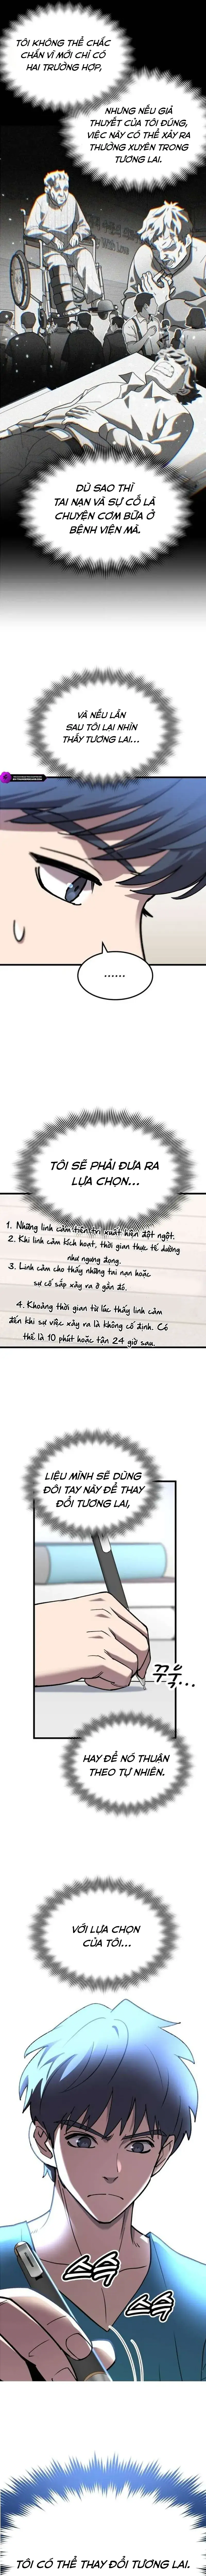 TÔI KHÔNG THỂ CHẮC
CHẮN VÌ MỚI CHỈ CÓ
HAI TRƯỜNG HỢP,
NHƯNG NẾU GIẢ
THUYẾT CỦA TÔI ĐÚNG,
VIỆC NÀY CÓ THỂ XẢY RA
THƯỜNG XUYÊN TRONG
TƯƠNG LAI.
DÙ SAO THÌ
TAI NẠN VÀ SỰ CỐ LÀ
CHUYỆN CƠM BỮA Ở
BỆNH VIỆN MÀ.
VÀ NẾU LẦN
SAU TÔI LẠI NHÌN
THẤY TƯƠNG LAI...
......
TÔI SẼ PHẢI ĐƯA RA
LỰA CHỌN...
1. Những linh cảm tiên tri xuất hiện đột ngột.
2. Khi linh cảm kích hoạt, thời gian thực tế dường
như ngưng đọng.
3. Linh cảm cho thấy những tai nạn hoặc
sự cố sắp xảy ra ở gần đó.
4. Khoảng thời gian từ lúc thấy linh cảm
đến khi sự việc xảy ra là không cố định. Có
thể là 10 phút hoặc tận 24 giờ sau.
LIỆU MÌNH SẼ DÙNG
ĐÔI TAY NÀY ĐỂ THAY
ĐỔI TƯƠNG LAI,
꾸욱...
HAY ĐỂ NÓ THUẬN
THEO TỰ NHIÊN.
VỚI LỰA CHỌN
CỦA TÔI...
슥
슥
TÔI CÓ THỂ THAY ĐỔI TƯƠNG LAI.